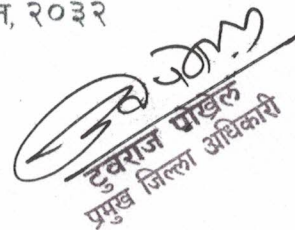 , २०३२
टुवराज पोखरेल
प्रमुख जिल्ला अधिकारी